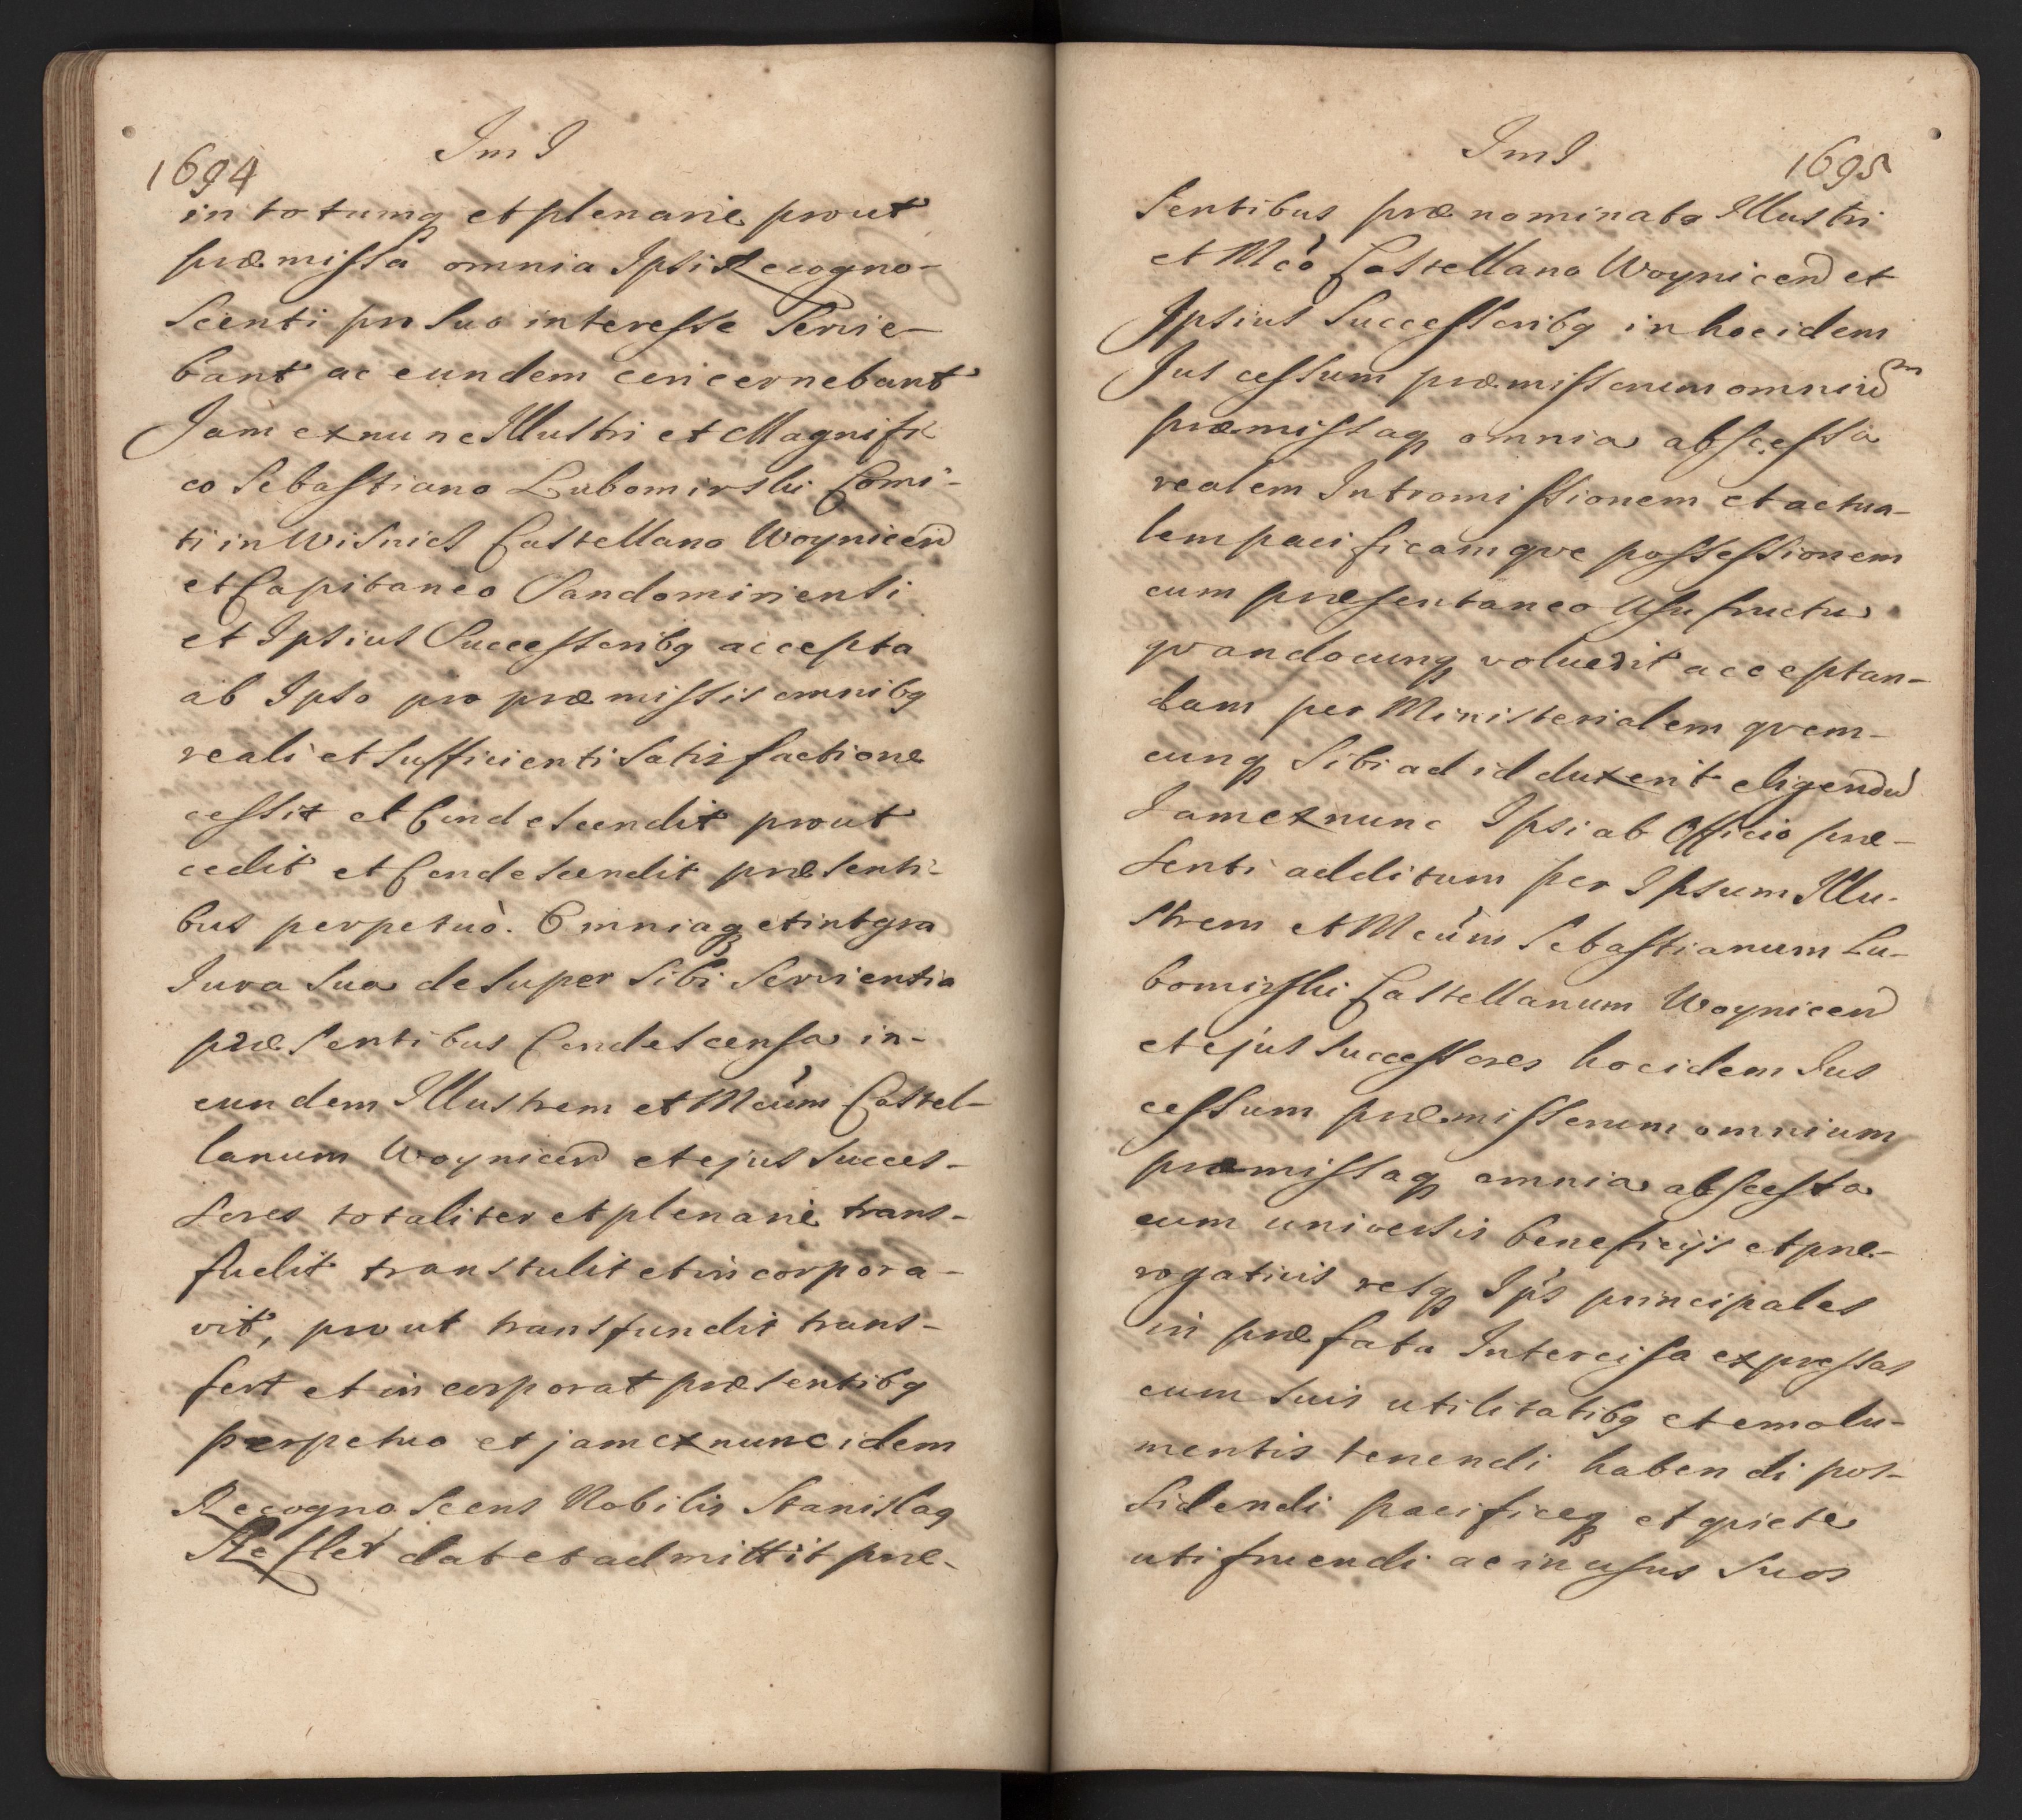 1694
Im I
in totumq et plenarie prout
præmissa omnia Ipsi Recogno-
scenti pro suo interesse servie-
bant ac eundem concernebant
Jam ex nunc Illustri et Magnifi-
co Sebastiano Lubomirski Comi-
ti in Wisnicz Castellano Woynicen
et Capitaneo Sandomiriensi
et Ipsius Successoribq accepta
ab Ipso pro præmissis omnibq
reali et sufficienti satisfactione
cessit et Condescendit prout
cedit et Condescendit præsenti-
bus perpetuò. Omniaq et intgra
Iura sua desuper sibi servientia
præsentibus Condescensa in-
eundem Illustrem et Mcum Castel-
lanum Woynicen et ejus succes-
sores totaliter et plenarie trans-
fudit transtulit et incorpora-
vit, prout transfundit trans-
fert et incorporat præsentibq
perpetuo et jam ex nunc idem
Recognoscens Nobilis Stanislaq
dat et admittit præ-
Im I
1695
sentibus prænominato Illustri
et Mcò Castellano Woynicen et
Ipsius Successoribq in hoc idem
Jus cessum præmissorum omniu m
præmissaq omnia abscessa
realem Intromissionem et actua-
lem pacificamqve possessionem
cum præsentaneo Usufructu
qvandocunq voluerit acceptan-
dam per Ministerialem qvem-
cunq sibi ad id duxerit eligendu
Jam ex nunc Ipsi ab Officio præ-
senti additum per Ipsum Illu-
strem et Mcum Sebastianum Lu-
bomirski Castellanum Woynicen
et ejus successores hoc idem Jus
cessum præmissorum omnium
præmissaq omnia abscessa
cum universis beneficijs et præ-
rogativis resq Ips principales
in præfata Intercisa expressas
cum suis utilitatibq et emolu-
mentis tenendi habendi pos-
sidendi pacificeq et qviete
utifruendi ac in usus suos